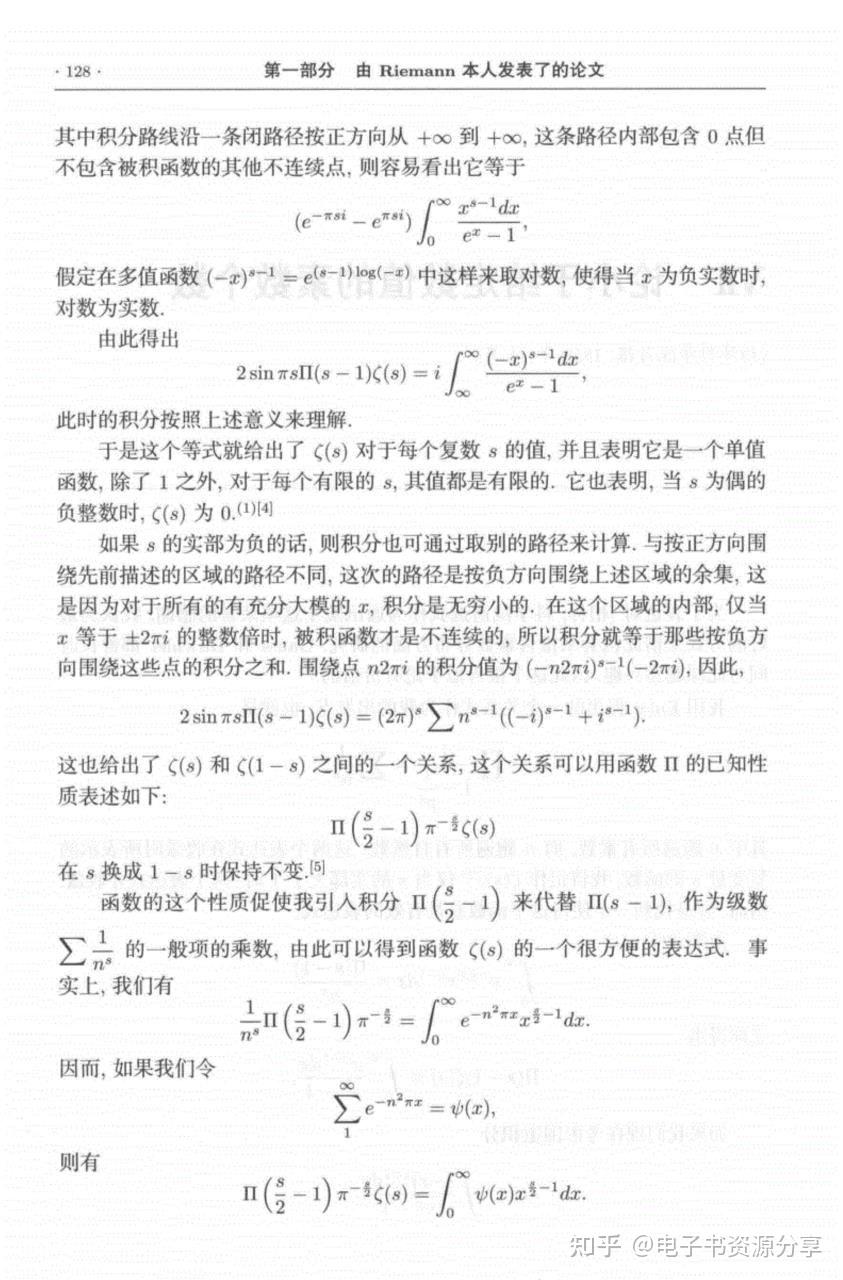 · 128 ·
第一部分 由 Riemann 本人发表了的论文
其中积分路线沿一条闭路径按正方向从 +∞ 到 +∞, 这条路径内部包含 0 点但
不包含被积函数的其他不连续点, 则容易看出它等于
(e^{-πsi} − e^{πsi}) ∫_0^∞ \frac{x^{s-1}dx}{e^x − 1},
假定在多值函数 (−x)^{s−1} = e^{(s−1) log(−x)} 中这样来取对数, 使得当 x 为负实数时,
对数为实数.
由此得出
2 sin πsΠ(s − 1)ζ(s) = i ∫_∞^∞ \frac{(−x)^{s−1}dx}{e^x − 1},
此时的积分按照上述意义来理解.
于是这个等式就给出了 ζ(s) 对于每个复数 s 的值, 并且表明它是一个单值
函数, 除了 1 之外, 对于每个有限的 s, 其值都是有限的. 它也表明, 当 s 为偶的
负整数时, ζ(s) 为 0.^{(1)[4]}
如果 s 的实部为负的话, 则积分也可通过取别的路径来计算. 与按正方向围
绕先前描述的区域的路径不同, 这次的路径是按负方向围绕上述区域的余集, 这
是因为对于所有的有充分大模的 x, 积分是无穷小的. 在这个区域的内部, 仅当
x 等于 ±2πi 的整数倍时, 被积函数才是不连续的, 所以积分就等于那些按负方
向围绕这些点的积分之和. 围绕点 n2πi 的积分值为 (−n2πi)^{s−1}(−2πi), 因此,
2 sin πsΠ(s − 1)ζ(s) = (2π)^s ∑ n^{s−1}((−i)^{s−1} + i^{s−1}).
这也给出了 ζ(s) 和 ζ(1 − s) 之间的一个关系, 这个关系可以用函数 Π 的已知性
质表述如下:
Π(\frac{s}{2} − 1) π^{−\frac{s}{2}} ζ(s)
在 s 换成 1 − s 时保持不变.^{[5]}
函数的这个性质促使我引入积分 Π(\frac{s}{2} − 1) 来代替 Π(s − 1), 作为级数
∑ \frac{1}{n^s} 的一般项的乘数, 由此可以得到函数 ζ(s) 的一个很方便的表达式. 事
实上, 我们有
\frac{1}{n^s} Π(\frac{s}{2} − 1) π^{−\frac{s}{2}} = ∫_0^∞ e^{−n^2πx} x^{\frac{s}{2}−1}dx.
因而, 如果我们令
∑_1^∞ e^{−n^2πx} = ψ(x),
则有
Π(\frac{s}{2} − 1) π^{−\frac{s}{2}} ζ(s) = ∫_0^∞ ψ(x)x^{\frac{s}{2}−1}dx.
知乎 @电子书资源分享